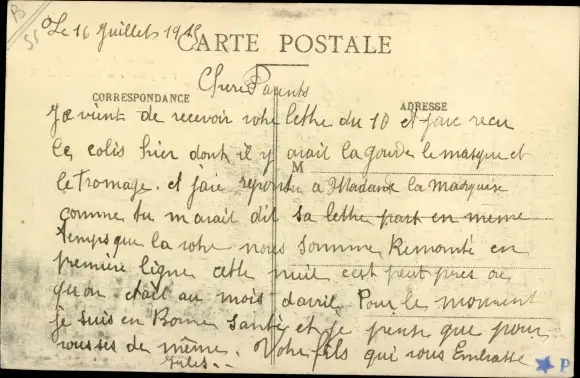 B
55
Le 16 Juillets 1915
CARTE POSTALE
Chere Parents
CORRESPONDANCE
ADRESSE
Je vient de recevoir votre lettre du 10 et jaie recu
le colis hier dont il y avait la gourde le masque et
M
le fromage. et jaie repontu a Madame la Marquise
comme tu m avait dit sa lettre part en meme
temps que la votre nous somme Remonté en
première ligne cette nuit c est peut pres ou
qu on etait au mois davril Pour le moment
Je suis en Bonne Santé et je pense que pour
vous ses de même. Votre fils qui vous Embrasse
Jules..
P